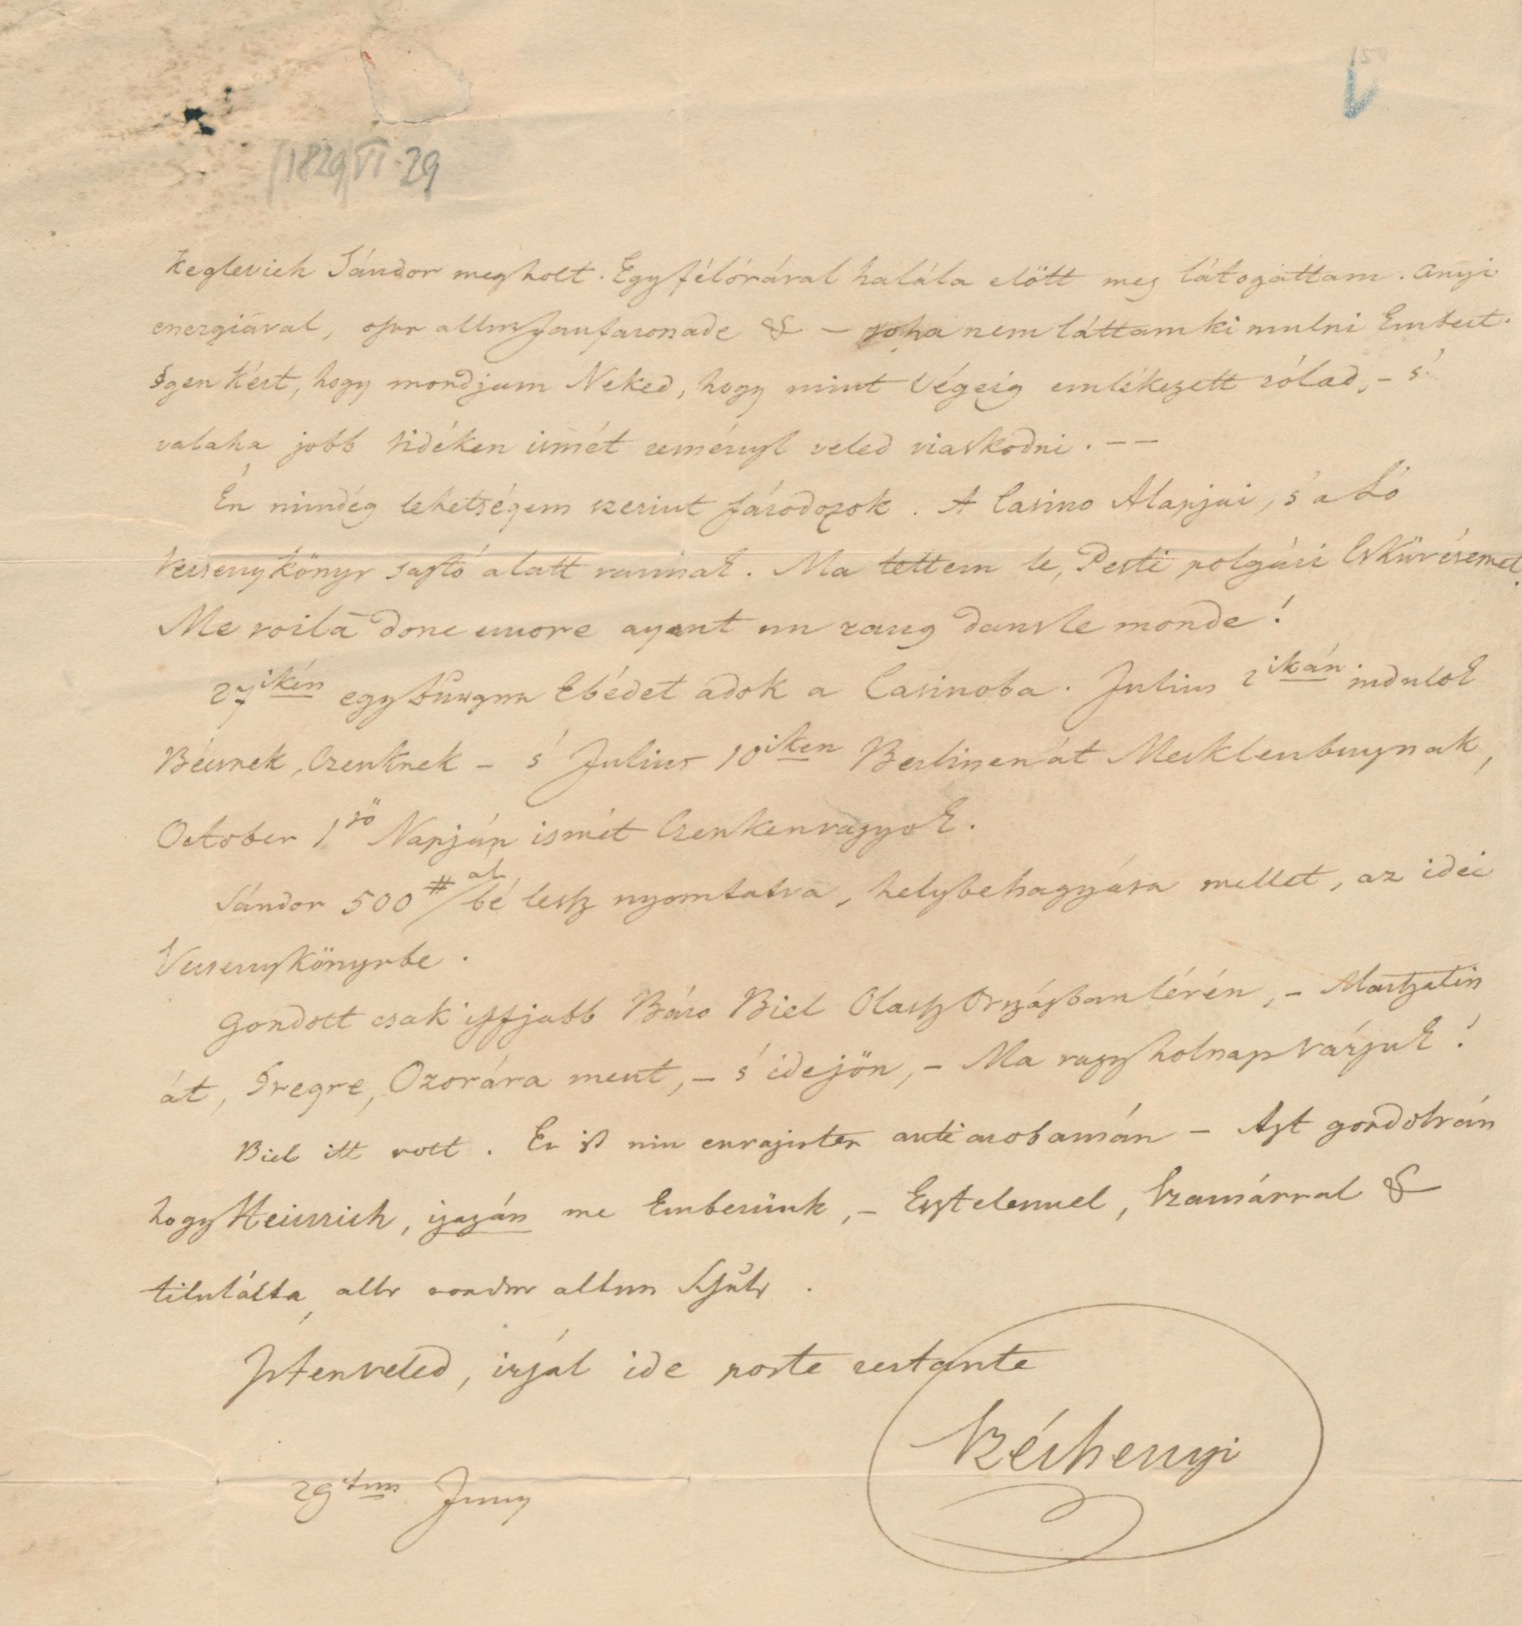 1829 VI. 29
Keglevich Sándor megholt. Egy félórával halála előtt meg látogattam. Anyi
energiával, ohne allen Fanfaronade & – soha nem láttam ki mulni Embert.
Igen kért, hogy mondjam Neked, hogy mint Végeig emlékezett rólad, – s'
valaha jobb vidéken ismét reményl veled viaskodni. ——
Én mindég lehetségem szerint fáradozok. A Casino Alapjai, s' a Ló
Versenykönyv sajtó alatt vannak. Ma tettem le, Pesti polgári Esküvésemet.
Me voilà donc encore ayant un rang dans le monde!
27ikén egy Ebédet adok a Casinoba. Julius 2ikán indulok
Bécsnek, Czenknek – s' Julius 10iken Berlinen át Mecklenburgnak,
October 1ső Napján ismét Czenken vagyok.
Sándor 500# al bé lesz nyomtatva, helybehagyása mellet, az idei
Versenykönyvbe.
Gondolt csak iffjabb Báro Biel Olasz Országban lérén, –
át, Iregre, Ozorára ment, – s' ide jön, – Ma vagy holnap várjuk!
Biel itt volt. Er ist ein – Azt gondolván
hogy Heinrich, igazán me Emberünk, – Esztelennel, Szamárral &
titulálta, aller
Isten veled, irjál ide poste restante
Széchenyi
29ten Juny